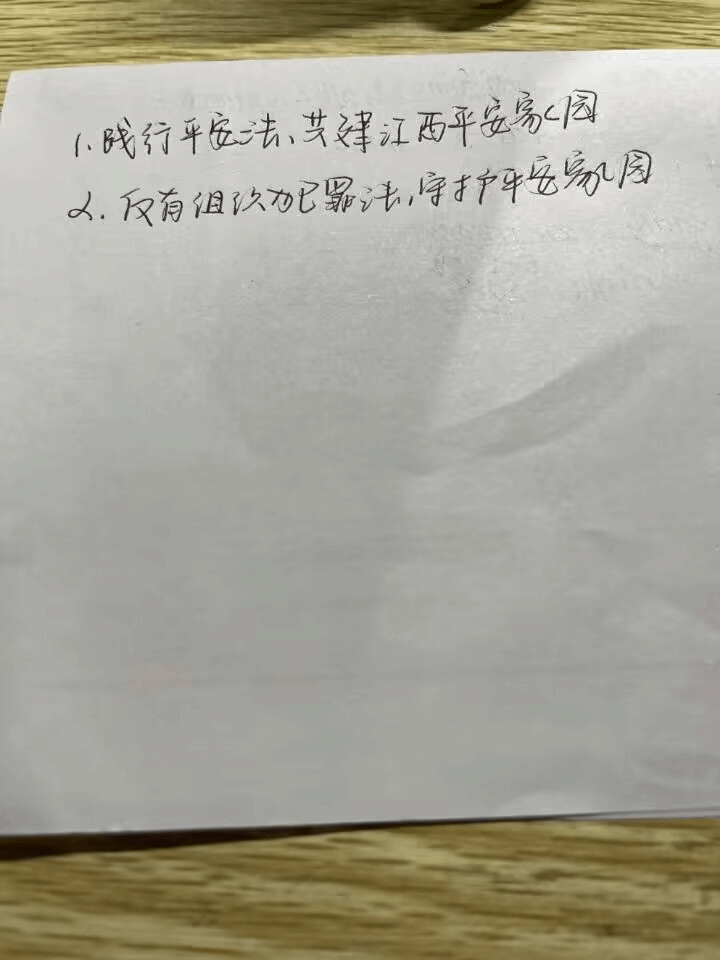 1.践行平安法、共建江西平安家园
2.反有组织犯罪法,守护平安家园